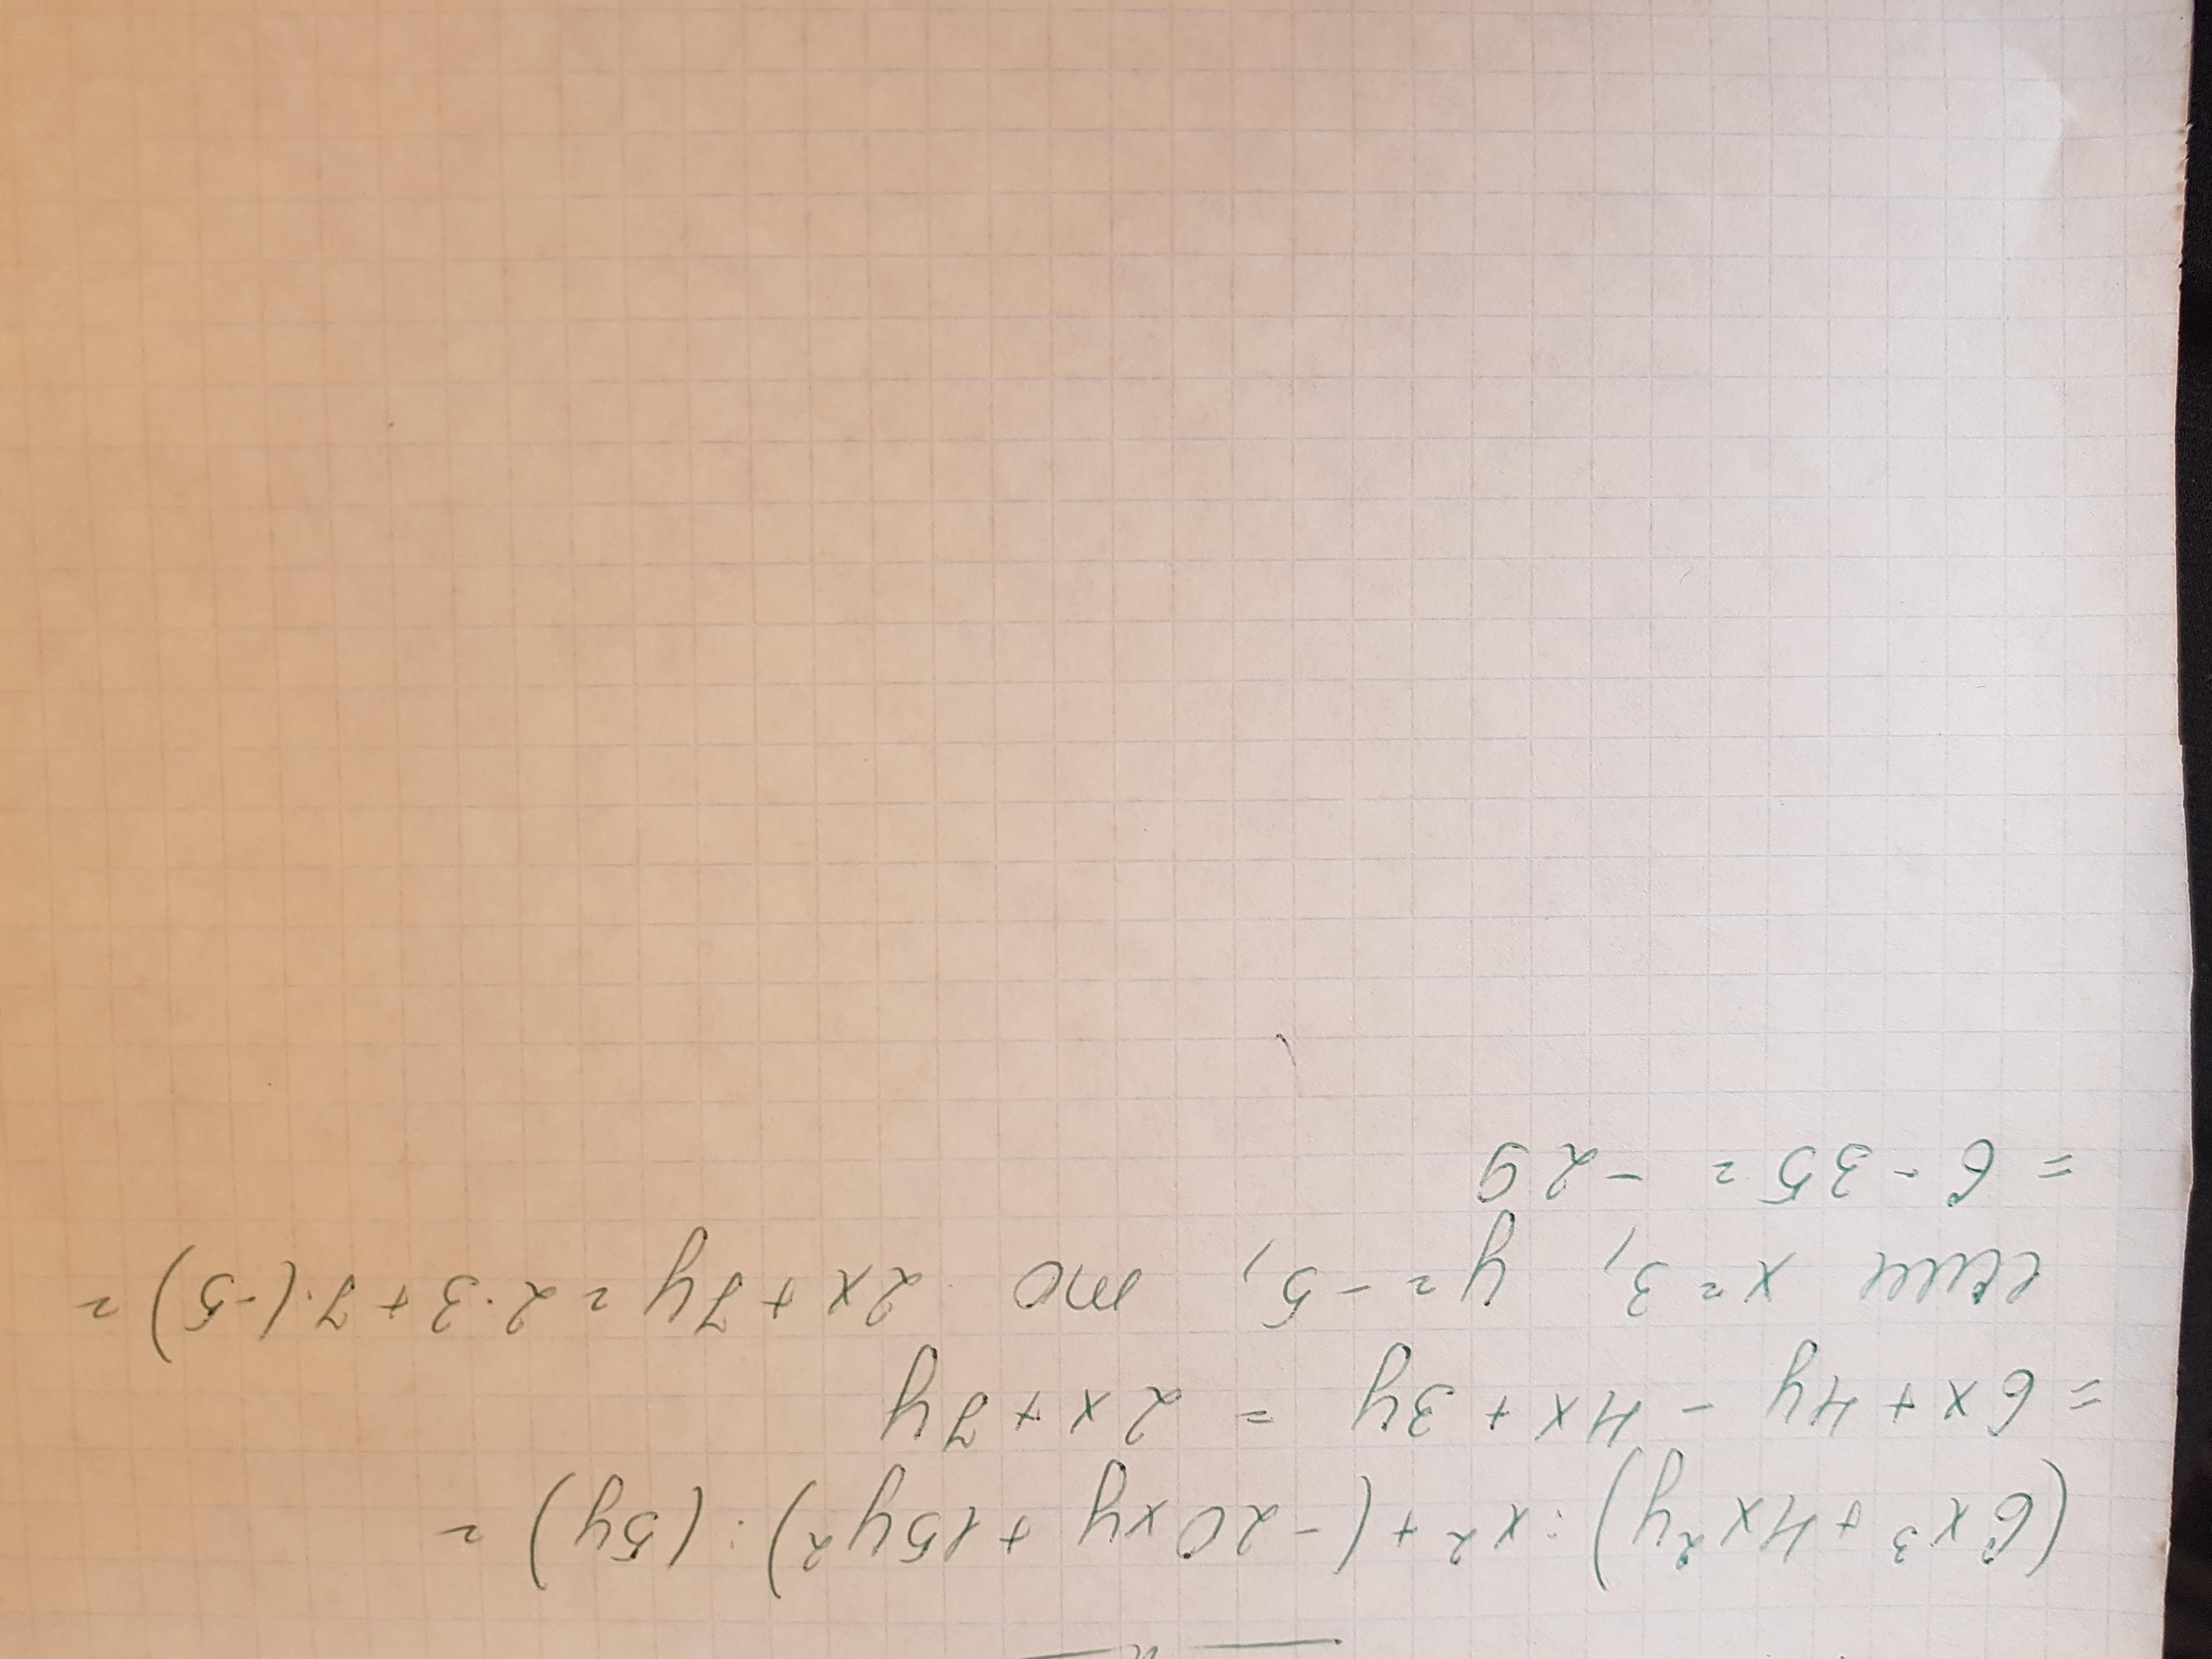 (6x³ + 4x²y) : x² + (-20xy + 15y²) : (5y) =
= 6x + 4y - 4x + 3y = 2x + 7y
если x = 3, y = -5, то 2x + 7y = 2·3 + 7·(-5) =
= 6 - 35 = -29